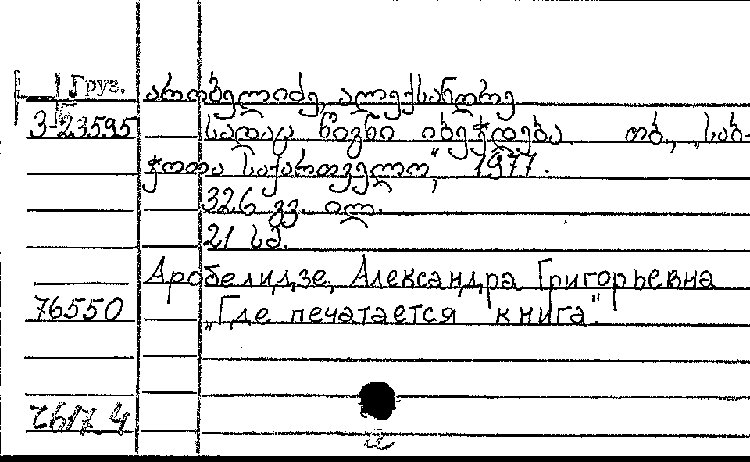 Груз.
არობელიძე, ალექსანდრე
3-23595 სადაც წიგნი იბეჭდება თბ., „საბ-
ჭოთა საქართველო", 1977.
326 გვ. ილ.
21 სმ.
Аробелидзе, Александра Григорьевна
76550 „Где печатается книга".